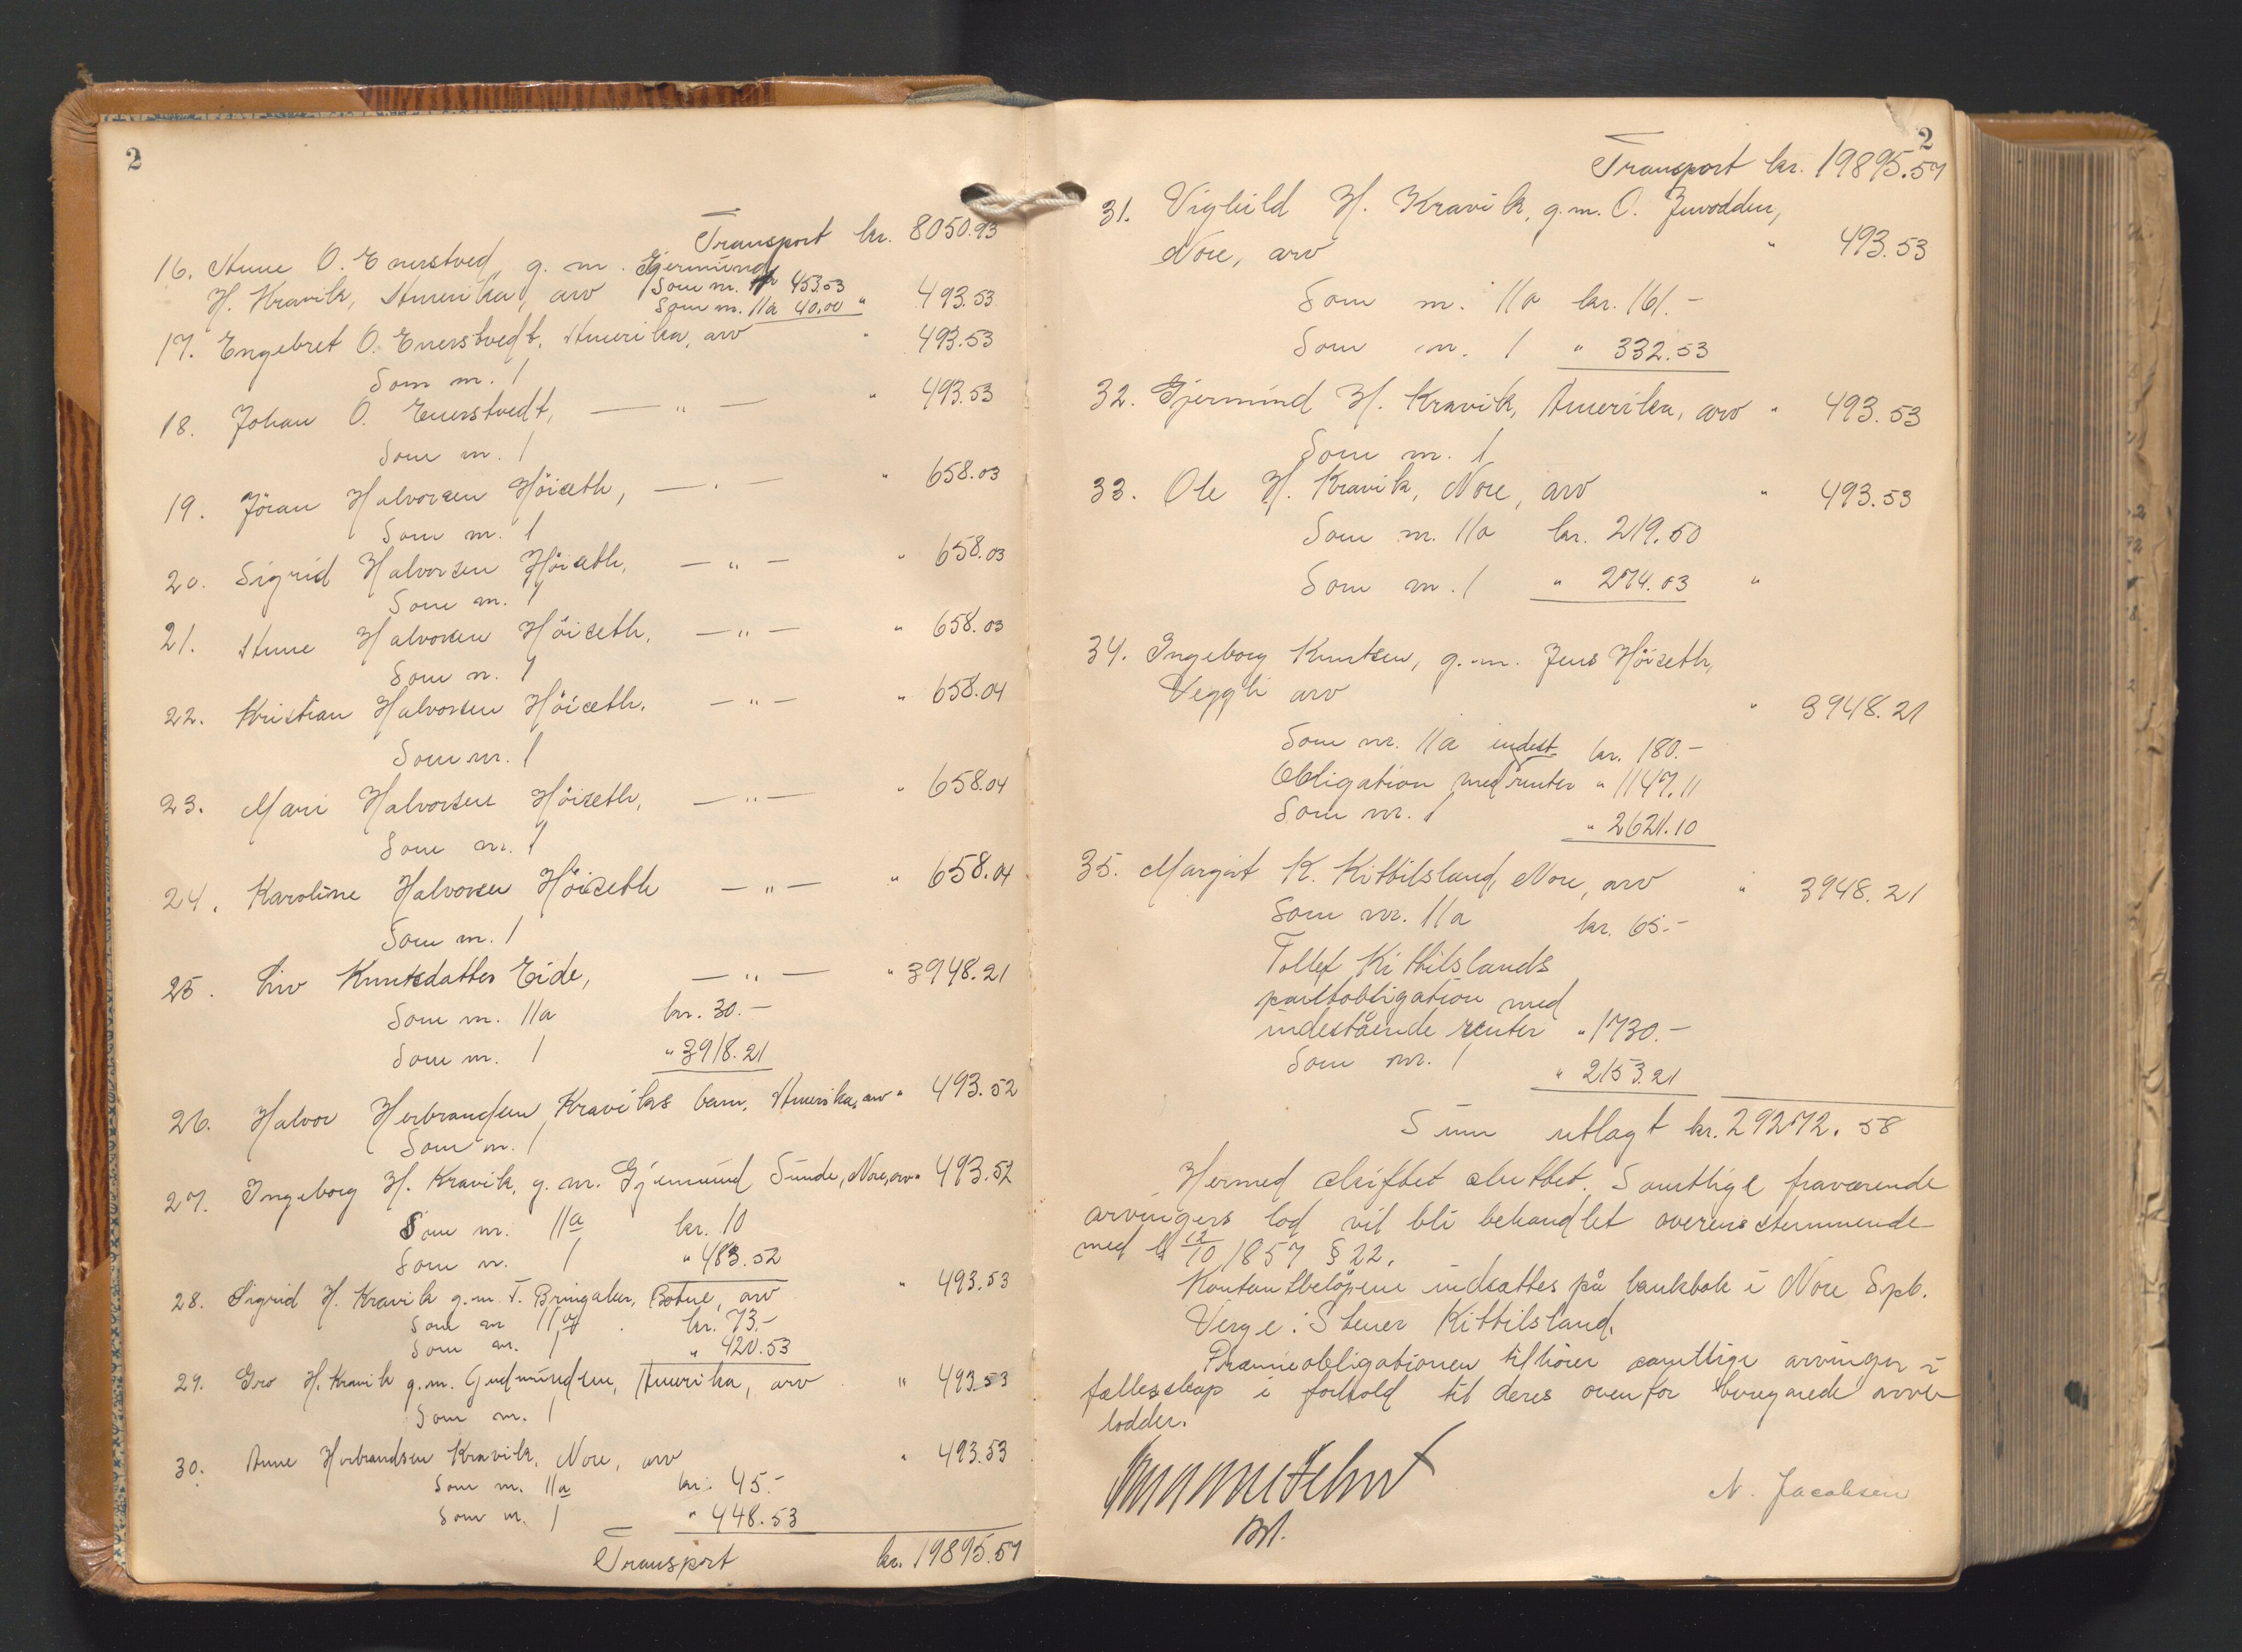 2
Transport kr. 8050.93
16. Anne O. Enerstved, g. m. Gjermund
H. Kravik, Amerika, arv Som nr. 1 453.53 " 493.53
Som nr. 11a 40.00
17. Engebret O. Enerstvedt, Amerika, arv " 493.53
Som nr. 1
18. Johan O. Enerstvedt, — " — " 493.53
Som nr. 1
19. Jöran Halvorsen Höiseth, — " — " 658.03
Som nr. 1
20. Sigrid Halvorsen Höiseth, — " — " 658.03
Som nr. 1
21. Anne Halvorsen Höiseth, — " — " 658.03
Som nr. 1
22. Kristian Halvorsen Höiseth, — " — " 658.04
Som nr. 1
23. Mari Halvorsen Höiseth, — " — " 658.04
Som nr. 1
24. Karoline Halvorsen Höiseth — " — " 658.04
Som nr. 1
25. Liv Knutsdatter Eide, — " — " 3948.21
Som nr. 11a kr. 30.-
Som nr. 1 " 3918.21
26. Halvor Herbrandsen Kraviks barn, Amerika, arv " 493.52
Som nr. 1
27. Ingeborg H. Kravik, g. m. Gjermund Sunde, Nore, arv " 493.52
Som nr. 11a kr. 10
Som nr. 1 " 483.52
28. Sigrid H. Kravik g.m. T. Bringaker, Botne, arv " 493.53
Som nr 11a kr. 73.-
Som nr. 1 " 420.53
29. Gro H. Kravik g.m. Gudmundsen, Amerika, arv " 493.53
Som nr. 1
30. Anne Herbrandsen Kravik, Nore, arv " 493.53
Som nr. 11a kr. 45.-
Som nr. 1 " 448.53
Transport kr. 19895.57
2
Transport kr. 19895.57
31. Vighild H. Kravik, g.m. O. Juvodden,
Nore, arv " 493.53
Som nr. 11a kr. 161.-
Som nr. 1 " 332.53
32. Gjermund H. Kravik, Amerika, arv " 493.53
Som nr. 1
33. Ole H. Kravik, Nore, arv " 493.53
Som nr. 11a kr. 219.50
Som nr. 1 " 274.03 "
34. Ingeborg Knutsen, g.m. Jens Höiseth,
Veggli arv " 3948.21
Som nr. 11a kr. 180.-
indest.
Obligation med renter " 1147.11
Som nr. 1 " 2621.10
35. Margit K. Kittilsland, Nore, arv " 3948.21
Som nr. 11a kr. 65.-
Tollef Kittilslands
pantobligation med
indestående renter " 1730.-
Som nr. 1 " 2153.21
Sum utlagt kr. 29272.58
Hermed skiftet sluttet. Samtlige fraværende
arvingers lod vil bli behandlet overensstemmende
med l 12/10 1857 § 22.
Kontantbelöpene indsattes på bankbok i Nore Spb.
Verge: Stener Kittilsland.
Præmieobligationen tilhörer samtlige arvinger i
fællesskap i forhold til deres ovenfor beregnede arve
lodder.
N. Jacobsen